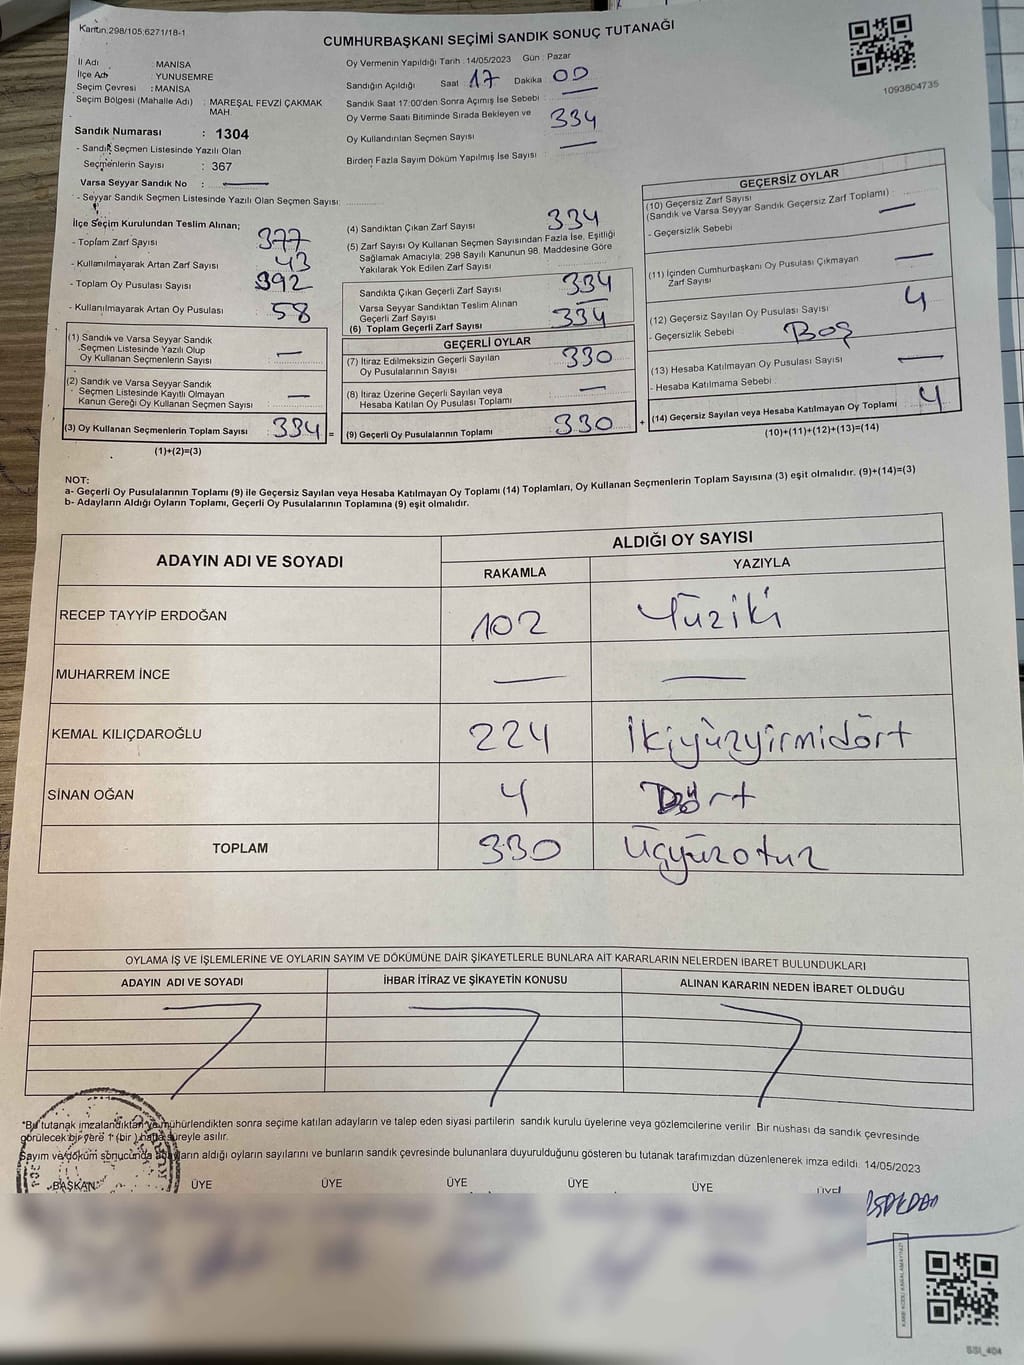 Kanun.298/105;6271/18-1
CUMHURBAŞKANI SEÇİMİ SANDIK SONUÇ TUTANAĞI
1093804735
İl Adı MANİSA
İlçe Adı YUNUSEMRE
Seçim Çevresi : MANİSA
Seçim Bölgesi (Mahalle Adı) : MAREŞAL FEVZİ ÇAKMAK MAH.
Sandık Numarası : 1304
- Sandık Seçmen Listesinde Yazılı Olan
Seçmenlerin Sayısı : 367
Varsa Seyyar Sandık No : —
- Seyyar Sandık Seçmen Listesinde Yazılı Olan Seçmen Sayısı:
Oy Vermenin Yapıldığı Tarih :14/05/2023 Gün : Pazar
Sandığın Açıldığı Saat 17 Dakika 00
Sandık Saat 17:00'den Sonra Açımış İse Sebebi : —
Oy Verme Saati Bitiminde Sırada Bekleyen ve
Oy Kullandırılan Seçmen Sayısı 334
Birden Fazla Sayım Döküm Yapılmış İse Sayısı : —
İlçe Seçim Kurulundan Teslim Alınan;
- Toplam Zarf Sayısı 377
- Kullanılmayarak Artan Zarf Sayısı 43
- Toplam Oy Pusulası Sayısı 392
- Kullanılmayarak Artan Oy Pusulası 58
(1) Sandık ve Varsa Seyyar Sandık
Seçmen Listesinde Yazılı Olup
Oy Kullanan Seçmenlerin Sayısı —
(2) Sandık ve Varsa Seyyar Sandık
Seçmen Listesinde Kayıtlı Olmayan
Kanun Gereği Oy Kullanan Seçmen Sayısı —
(3) Oy Kullanan Seçmenlerin Toplam Sayısı 334 =
(1)+(2)=(3)
(4) Sandıktan Çıkan Zarf Sayısı 334
(5) Zarf Sayısı Oy Kullanan Seçmen Sayısından Fazla İse, Eşitliği
Sağlamak Amacıyla; 298 Sayılı Kanunun 98. Maddesine Göre
Yakılarak Yok Edilen Zarf Sayısı
Sandıkta Çıkan Geçerli Zarf Sayısı 334
Varsa Seyyar Sandıktan Teslim Alınan
Geçerli Zarf Sayısı —
(6) Toplam Geçerli Zarf Sayısı 334
GEÇERLİ OYLAR
(7) İtiraz Edilmeksizin Geçerli Sayılan
Oy Pusulalarının Sayısı 330
(8) İtiraz Üzerine Geçerli Sayılan veya
Hesaba Katılan Oy Pusulası Toplamı —
(9) Geçerli Oy Pusulalarının Toplamı 330 +
GEÇERSİZ OYLAR
(10) Geçersiz Zarf Sayısı
(Sandık ve Varsa Seyyar Sandık Geçersiz Zarf Toplamı) : —
- Geçersizlik Sebebi
(11) İçinden Cumhurbaşkanı Oy Pusulası Çıkmayan
Zarf Sayısı —
(12) Geçersiz Sayılan Oy Pusulası Sayısı 4
- Geçersizlik Sebebi Boş
(13) Hesaba Katılmayan Oy Pusulası Sayısı —
- Hesaba Katılmama Sebebi :
(14) Geçersiz Sayılan veya Hesaba Katılmayan Oy Toplamı 4
(10)+(11)+(12)+(13)=(14)
NOT:
a- Geçerli Oy Pusulalarının Toplamı (9) ile Geçersiz Sayılan veya Hesaba Katılmayan Oy Toplamı (14) Toplamları, Oy Kullanan Seçmenlerin Toplam Sayısına (3) eşit olmalıdır. (9)+(14)=(3)
b- Adayların Aldığı Oyların Toplamı, Geçerli Oy Pusulalarının Toplamına (9) eşit olmalıdır.
ADAYIN ADI VE SOYADI ALDIĞI OY SAYISI
RAKAMLA YAZIYLA
RECEP TAYYİP ERDOĞAN 102 Yüziki
MUHARREM İNCE — —
KEMAL KILIÇDAROĞLU 224 İkiyüzyirmidört
SİNAN OĞAN 4 Dört
TOPLAM 330 Üçyüzotuz
OYLAMA İŞ VE İŞLEMLERİNE VE OYLARIN SAYIM VE DÖKÜMÜNE DAİR ŞİKAYETLERLE BUNLARA AİT KARARLARIN NELERDEN İBARET BULUNDUKLARI
ADAYIN ADI VE SOYADI İHBAR İTİRAZ VE ŞİKAYETİN KONUSU ALINAN KARARIN NEDEN İBARET OLDUĞU
"Bu tutanak imzalandıktan ve mühürlendikten sonra seçime katılan adayların ve talep eden siyasi partilerin sandık kurulu üyelerine veya gözlemcilerine verilir .Bir nüshası da sandık çevresinde
görülecek bir yere 1 (bir) hafta süreyle asılır.
Sayım ve döküm sonucunda adayların aldığı oyların sayılarını ve bunların sandık çevresinde bulunanlara duyurulduğunu gösteren bu tutanak tarafımızdan düzenlenerek imza edildi. 14/05/2023
BAŞKAN ÜYE ÜYE ÜYE ÜYE ÜYE ÜYE
SSI_404